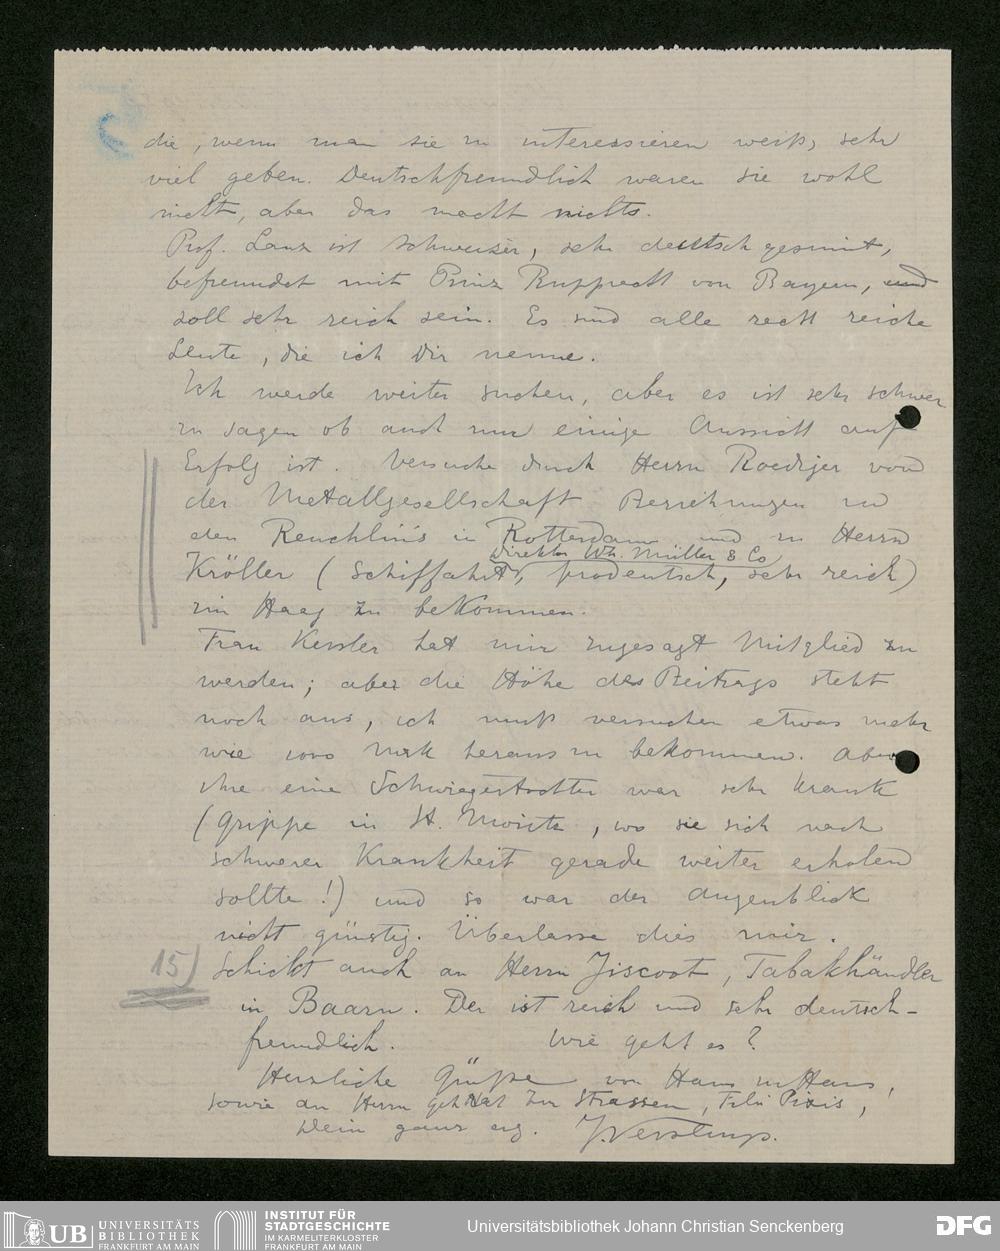 die, wenn man sie zu interessieren weiß, sehr
viel geben. Deutschfreundlich waren sie wohl
nicht, aber das macht nichts.
Prof. Lanz ist Schweizer, sehr deutsch gesinnt,
befreundet mit Prinz Rupprecht von Bayern, und
soll sehr reich sein. Es sind alle recht reiche
Leute, die ich Dir nenne.
Ich werde weiter suchen, aber es ist sehr schwer
zu sagen ob auch nur einige Aussicht auf
Erfolg ist. Versuche durch Herrn Roediger von
der Metallgesellschaft Beziehungen zu
den Reuchlins in Rotterdam und zu Herrn
Direktor Wh. Müller & Co
Kröller (Schiffahrt, prodeutsch, sehr reich)
im Haag zu bekommen.
Frau Kessler hat mir zugesagt Mitglied zu
werden; aber die Höhe des Beitrags steht
noch aus, ich muß versuchen etwas mehr
wie 1000 Mark heraus zu bekommen. Aber
ihre eine Schwiegertochter war sehr krank
(Grippe in St. Moritz, wo sie sich nach
schwerer Krankheit gerade weiter erholen
sollte!) und so war der Augenblick
nicht günstig. Überlasse dies mir.
15) Schickt auch an Herrn Jiscoot, Tabakhändler
in Baarn. Der ist reich und sehr deutsch-
freundlich. Wie geht es?
Herzliche Grüße von Haus zu Haus,
sowie an Herrn Geh Rat Zur Strassen, Pixis,!
Dein ganz erg. J. Versluys.
UB UNIVERSITÄTS
BIBLIOTHEK
FRANKFURT AM MAIN
INSTITUT FÜR
STADTGESCHICHTE
IM KARMELITERKLOSTER
FRANKFURT AM MAIN
Universitätsbibliothek Johann Christian Senckenberg
DFG